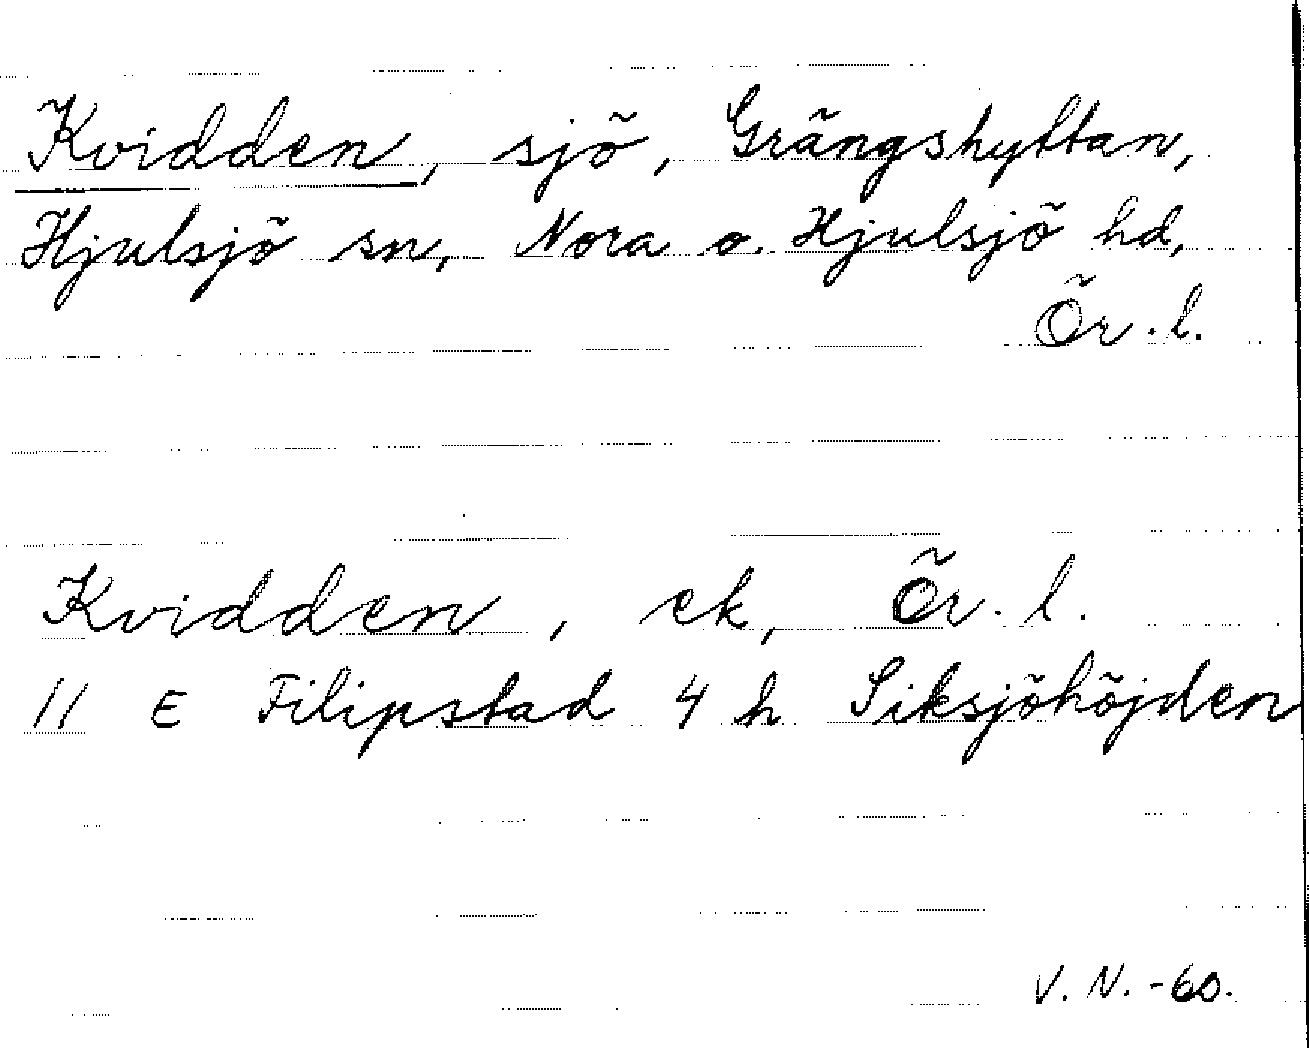 Kvidden, sjö, Grängshyttan,
Hjulsjö sn, Nora o. Hjulsjö hd,
Ör. l.
Kvidden, ek, Ör. l.
11 E Filipstad 4 h Siksjöhöjden
V. N. -60.